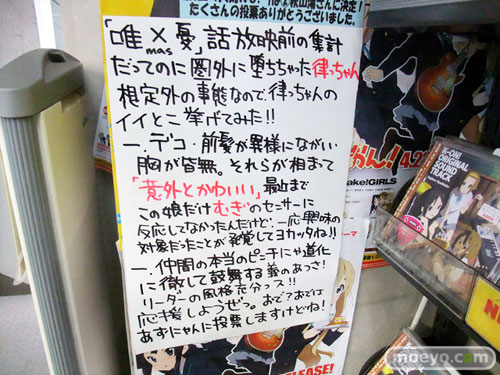 は秋山澪さんに決定!
たくさんの投票ありがとうございました。
「唯×憂」話放映前の集計
mas
だってのに圏外に堕ちちゃった律っちゃん
想定外の事態なので、律っちゃんの
イイとこ挙げてみた!!
一.デコ・前髪が異様にながい
胸が皆無。それらが相まって
「意外とかわいい」最近まで
この娘だけむぎのセーサーに
反応してなかったんだけど、一応興味の
対象だったことが発覚してヨカッタね!!
一.仲間の本当のピーチにゃ道化
に徹して鼓舞する事のあっさ!
リーダーの風格充分っス!!
応援しようぜっ。おで?おでは
あずにゃんに投票しますけどね!
K-ON!
ORIGINAL
SOUND
TRACK
ake!GIRLS
moeyo.com